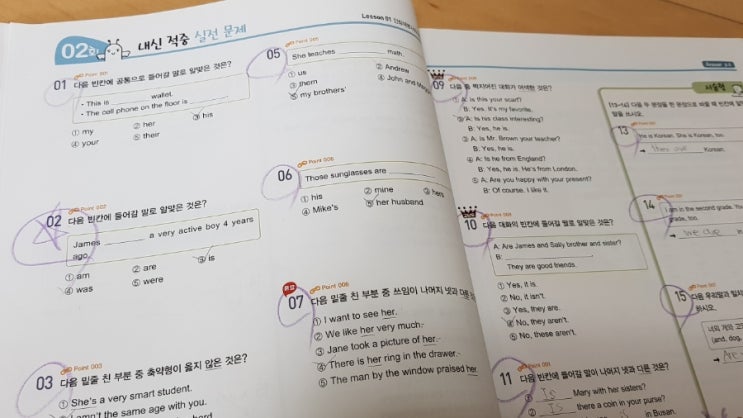 02회 내신 적중 실전 문제
Lesson 01
Point 001
01 다음 빈칸에 공통으로 들어갈 말로 알맞은 것은?
• This is ________ wallet.
• The cell phone on the floor is ________.
① my ② her ③ his
④ your ⑤ their
Point 002
02 다음 빈칸에 들어갈 말로 알맞은 것은?
James ________ a very active boy 4 years
ago.
① am ② are ③ is
④ was ⑤ were
Point 003
03 다음 밑줄 친 부분 중 축약형이 옳지 않은 것은?
① She's a very smart student.
② I amn't the same age with you.
Point 005
05 She teaches ________ math.
① us ② Andrew
③ them ④ John and
⑤ my brothers'
Point 006
06 Those sunglasses are ________
① his ② mine ③ hers
④ Mike's ⑤ her husband
Point 006
07 다음 밑줄 친 부분 중 쓰임이 나머지 넷과 다른
① I want to see her.
② We like her very much.
③ Jane took a picture of her.
④ There is her ring in the drawer.
⑤ The man by the window praised her
09 다음 중 짝지어진 대화가 어색한 것은?
① A: Is this your scarf?
B: Yes. It's my favorite.
② A: Is his class interesting?
B: Yes, he is.
③ A: Is Mr. Brown your teacher?
B: Yes, he is.
④ A: Is he from England?
B: Yes, he is. He's from London.
⑤ A: Are you happy with your present?
B: Of course. I like it.
10 다음 대화의 빈칸에 들어갈 말로 알맞은 것은?
A: Are James and Sally brother and sister?
B: ________
They are good friends.
① Yes, it is.
② No, it isn't.
③ Yes, they are.
④ No, they aren't.
⑤ No, these aren't.
11 다음 빈칸에 들어갈 말이 나머지 넷과 다른 것은?
① Is Mary with her sisters?
② Is there a coin in your purse?
in Busan.
서술형
13
He is Korean. She is Korean, too.
→ They are Korean.
14
I am in the second grade.
grade, too.
→ We are in
15 다음 우리말과
하시오.